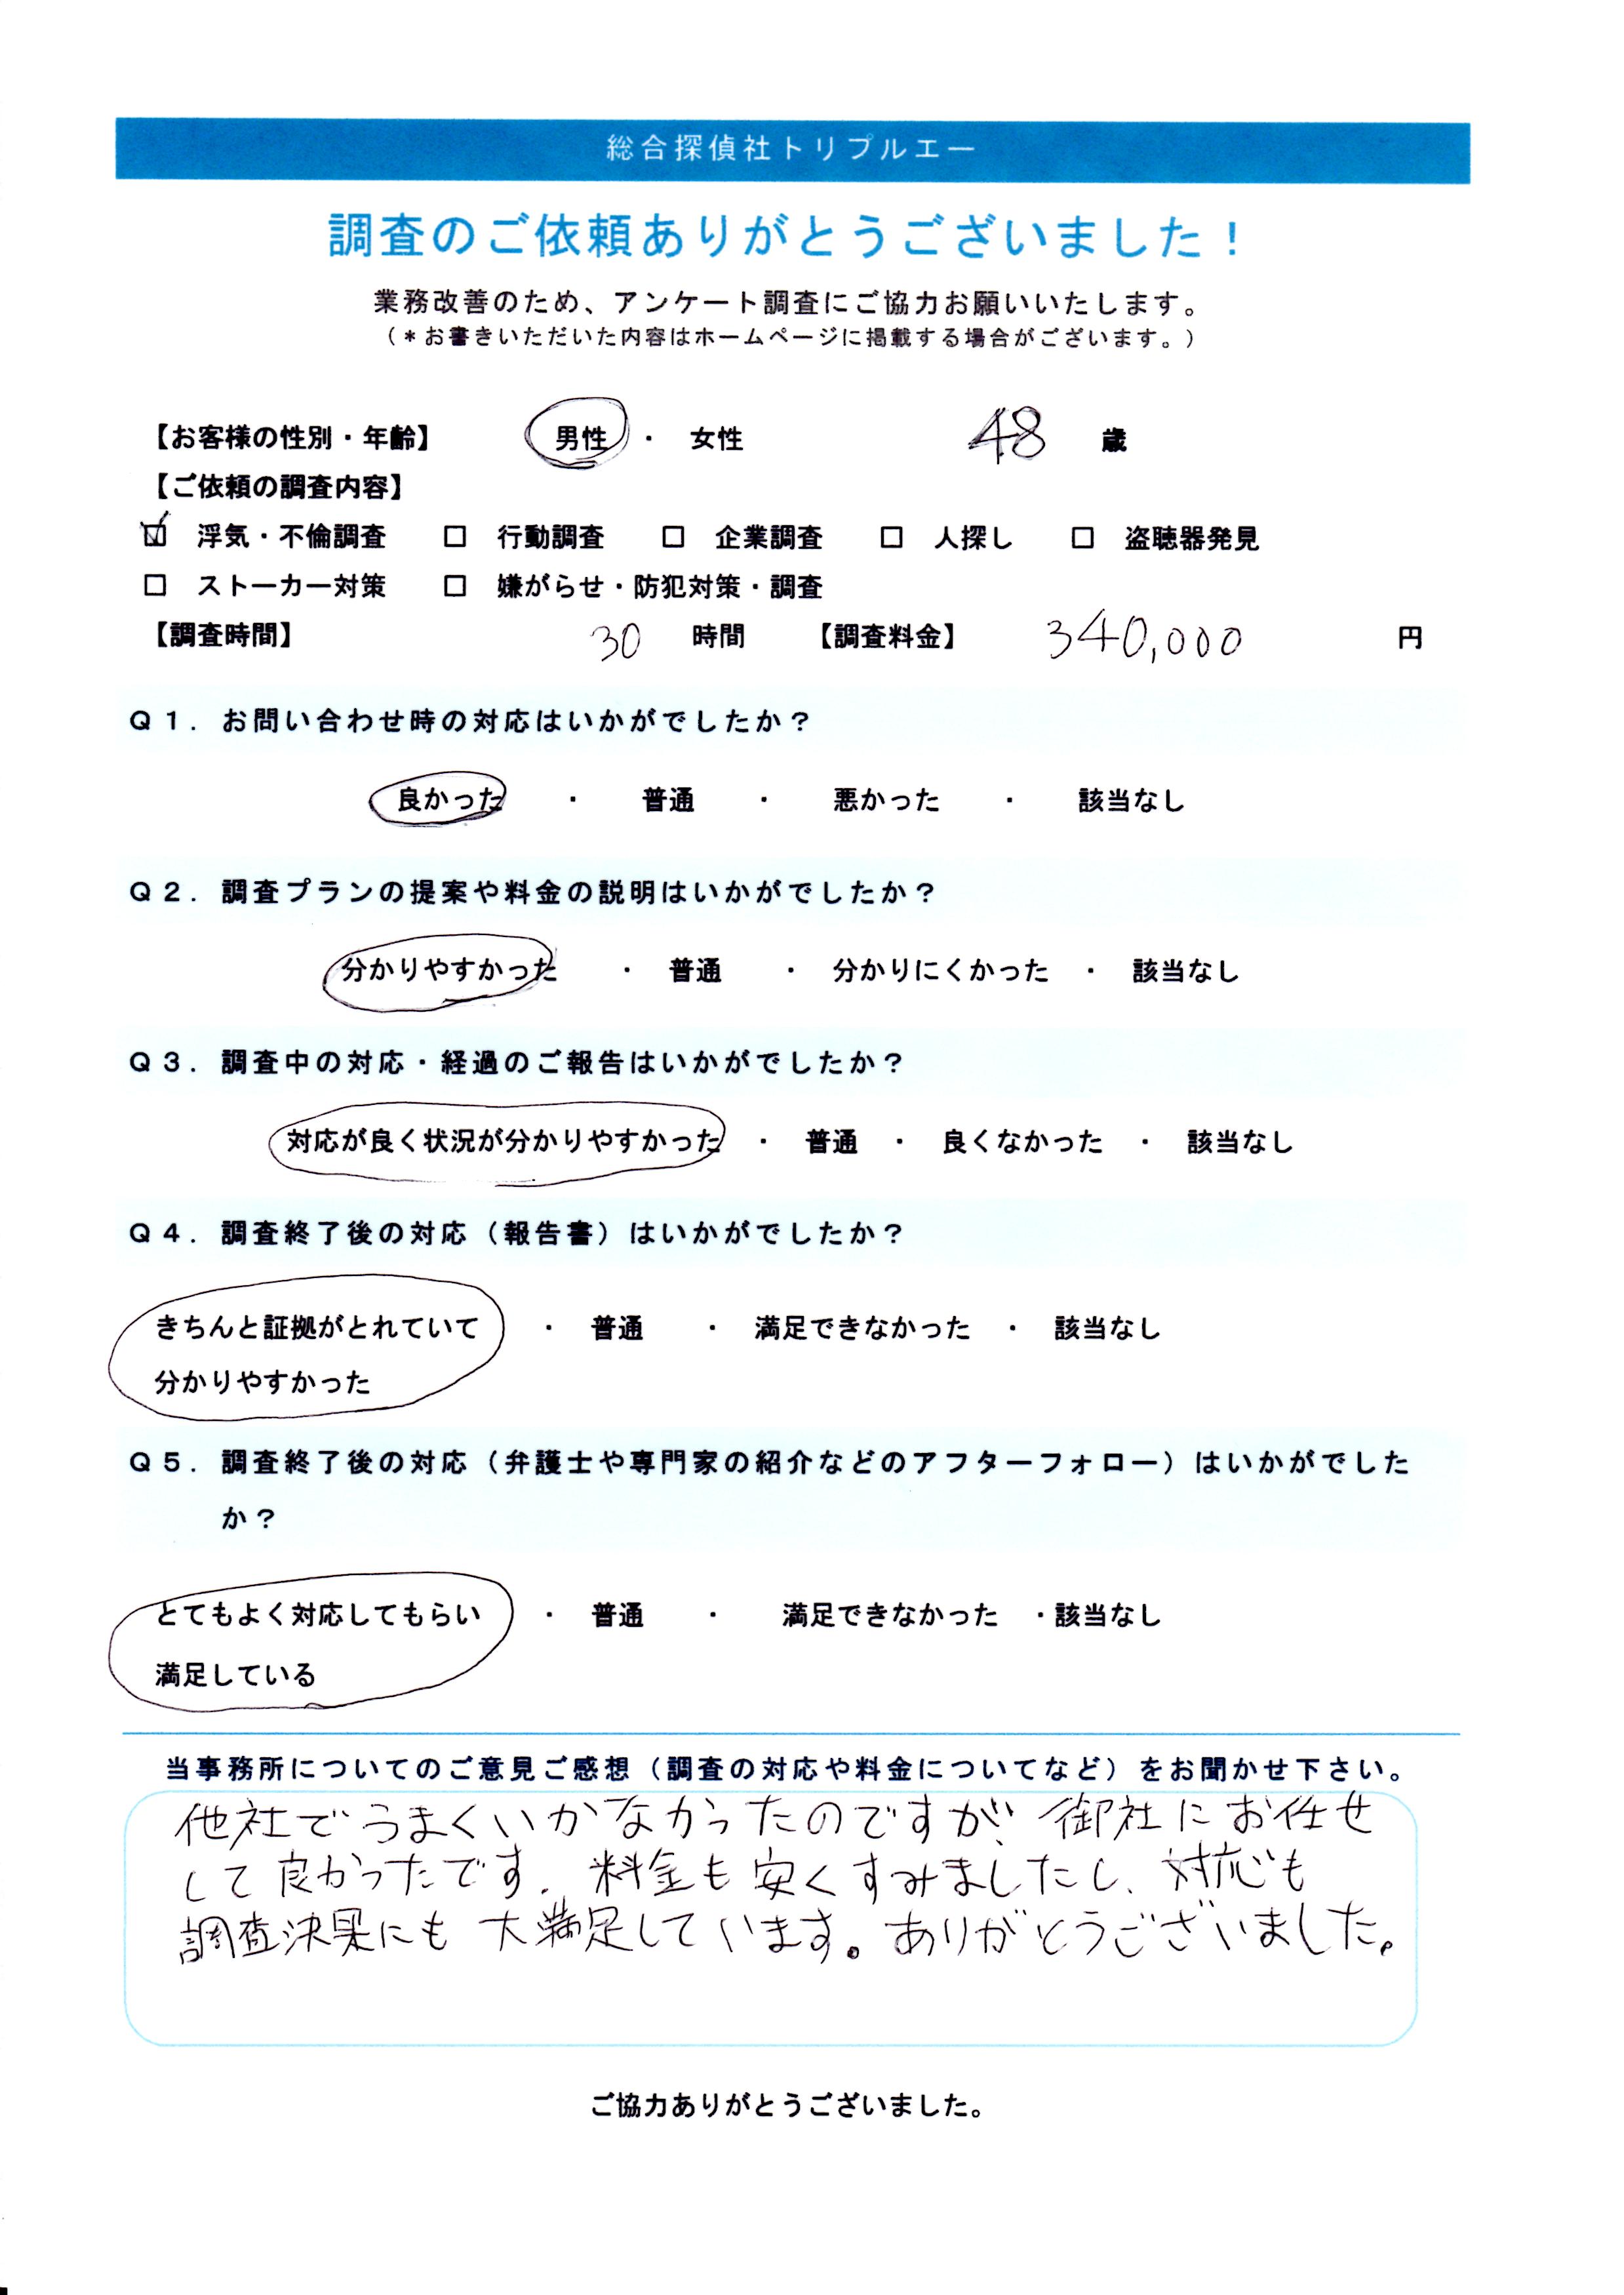 総合探偵社トリプルエー
調査のご依頼ありがとうございました！
業務改善のため、アンケート調査にご協力お願いいたします。
（＊お書きいただいた内容はホームページに掲載する場合がございます。）
【お客様の性別・年齢】 男性 ・ 女性 48 歳
【ご依頼の調査内容】
☑ 浮気・不倫調査 □ 行動調査 □ 企業調査 □ 人探し □ 盗聴器発見
□ ストーカー対策 □ 嫌がらせ・防犯対策・調査
【調査時間】 30 時間 【調査料金】 340,000 円
Ｑ１．お問い合わせ時の対応はいかがでしたか？
良かった ・ 普通 ・ 悪かった ・ 該当なし
Ｑ２．調査プランの提案や料金の説明はいかがでしたか？
分かりやすかった ・ 普通 ・ 分かりにくかった ・ 該当なし
Ｑ３．調査中の対応・経過のご報告はいかがでしたか？
対応が良く状況が分かりやすかった ・ 普通 ・ 良くなかった ・ 該当なし
Ｑ４．調査終了後の対応（報告書）はいかがでしたか？
きちんと証拠がとれていて ・ 普通 ・ 満足できなかった ・ 該当なし
分かりやすかった
Ｑ５．調査終了後の対応（弁護士や専門家の紹介などのアフターフォロー）はいかがでした
か？
とてもよく対応してもらい ・ 普通 ・ 満足できなかった ・該当なし
満足している
当事務所についてのご意見ご感想（調査の対応や料金についてなど）をお聞かせ下さい。
他社でうまくいかなかったのですが、御社にお任せ
して良かったです。料金も安くすみましたし、対応も
調査決果にも大満足しています。ありがとうございました。
ご協力ありがとうございました。